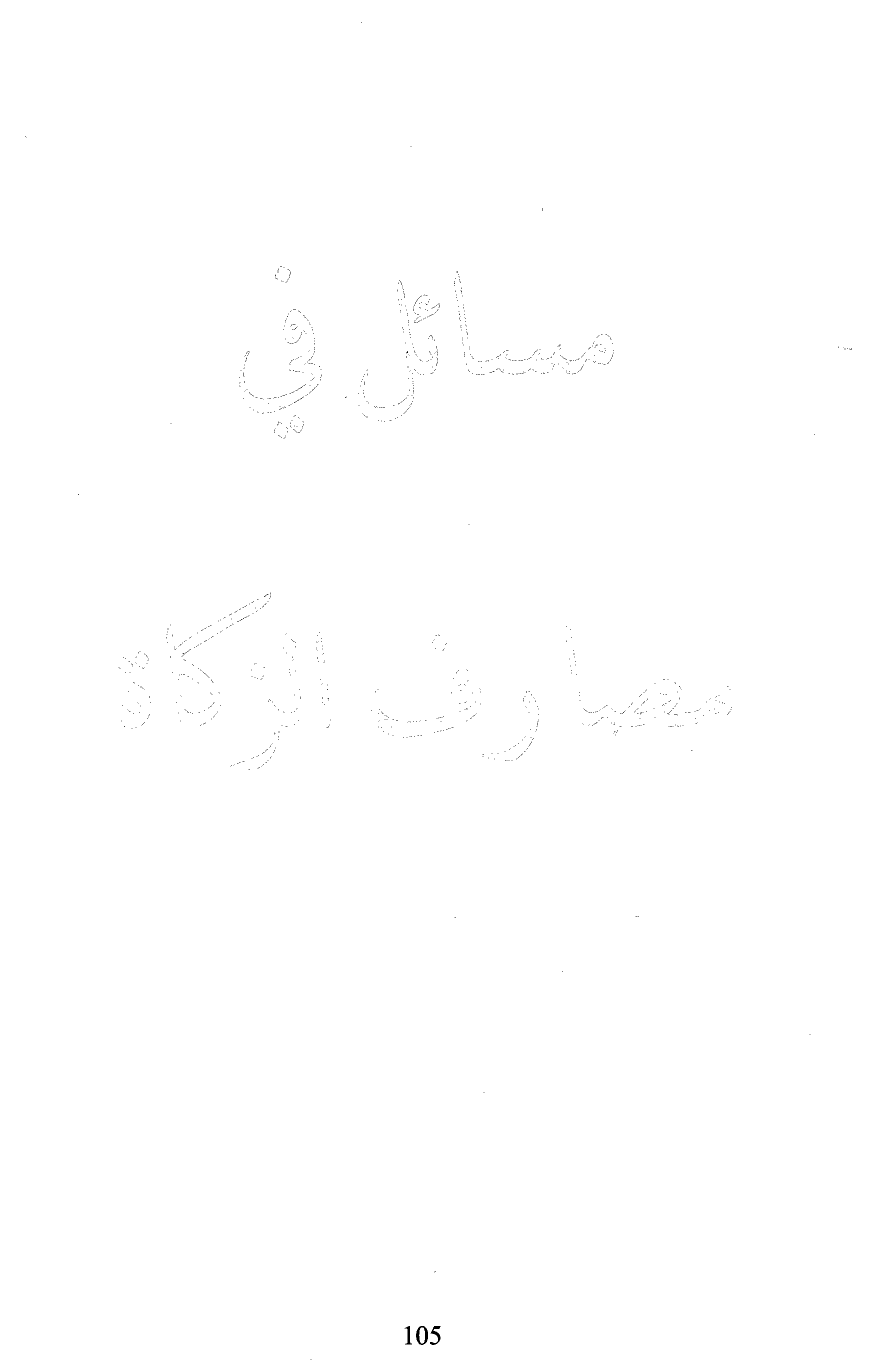 مسائل في
مصارف الزكاة
105